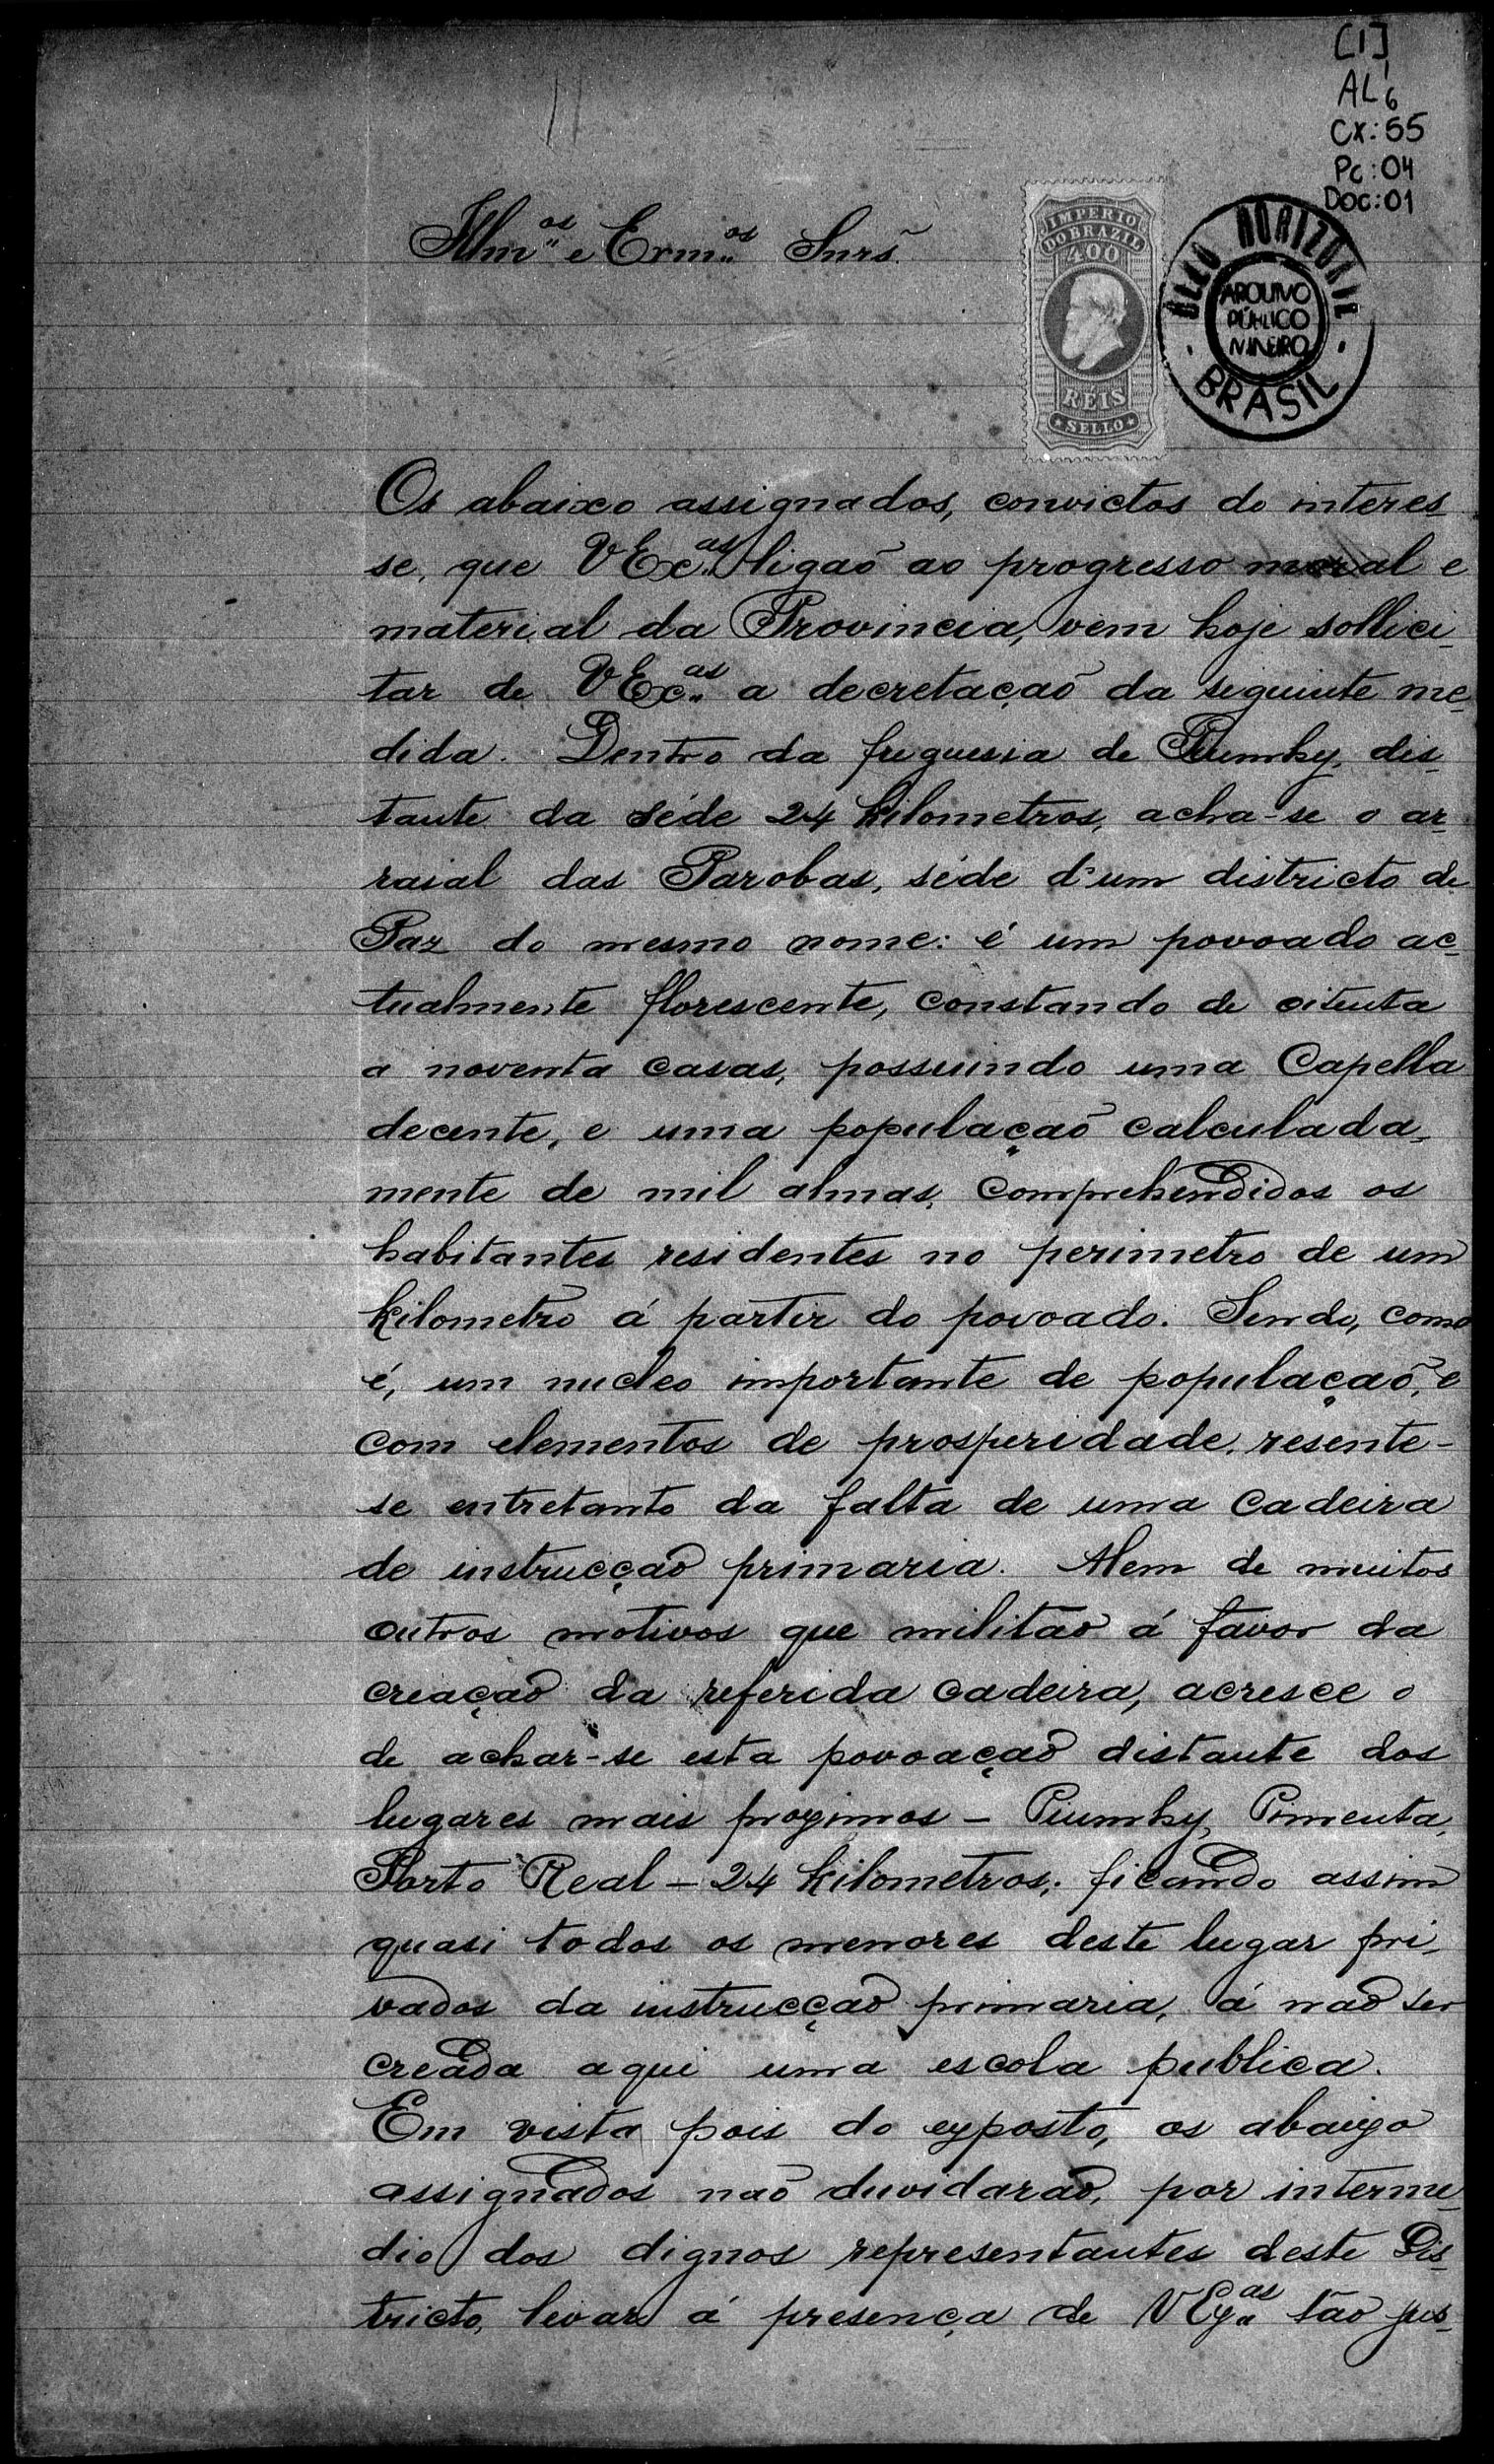 [1]
AL 6
Cx: 55
Pc: 04
Doc: 01
Illm.os e Exm.os Snrs.
IMPERIO
DO BRAZIL
400
RÉIS
SELLO
BELLO HORIZONTE
ARQUIVO
PÚBLICO
MINEIRO
BRASIL
Os abaixo assignados, convictos do interes-
se, que VExc.as ligaõ ao progresso moral e
material da Provincia, vem hoje sollici-
tar de VExc.as a decretaçaõ da seguinte me-
dida. Dentro da freguesia de Piumhy, dis-
tante da séde 24 kilometros, acha-se o ar-
raial das Parobas, séde d'um districto de
Paz do mesmo nome: é um povoado ac-
tualmente florescente, constando de oitenta
a noventa casas, possuindo uma Capella
decente, e uma populaçaõ calculada-
mente de mil almas, comprehendidos os
habitantes residentes no perimetro de um
kilometro á partir do povoado. Sendo, como
é, um nucleo importante de populaçaõ, e
com elementos de prosperidade, resente-
se entretanto da falta de uma cadeira
de instrucçaõ primaria. Alem de muitos
outros motivos que militaõ á favor da
creaçaõ da referida cadeira, acresce o
de achar-se esta povoaçaõ distante dos
lugares mais proximos - Piumhy, Pimenta,
Porto Real - 24 kilometros; ficando assim
quasi todos os menores deste lugar pri-
vados da instrucçaõ primaria, á naõ ser
creada aqui uma escola publica.
Em vista pois do exposto, os abaixo
assignados naõ duvidaraõ, por interme-
dio dos dignos representantes deste Dis-
tricto, levar á presença de VEx.as taõ jus-